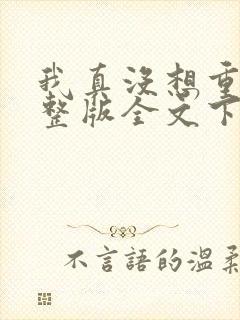 我真没想重
整版全文下
不言語的温柔